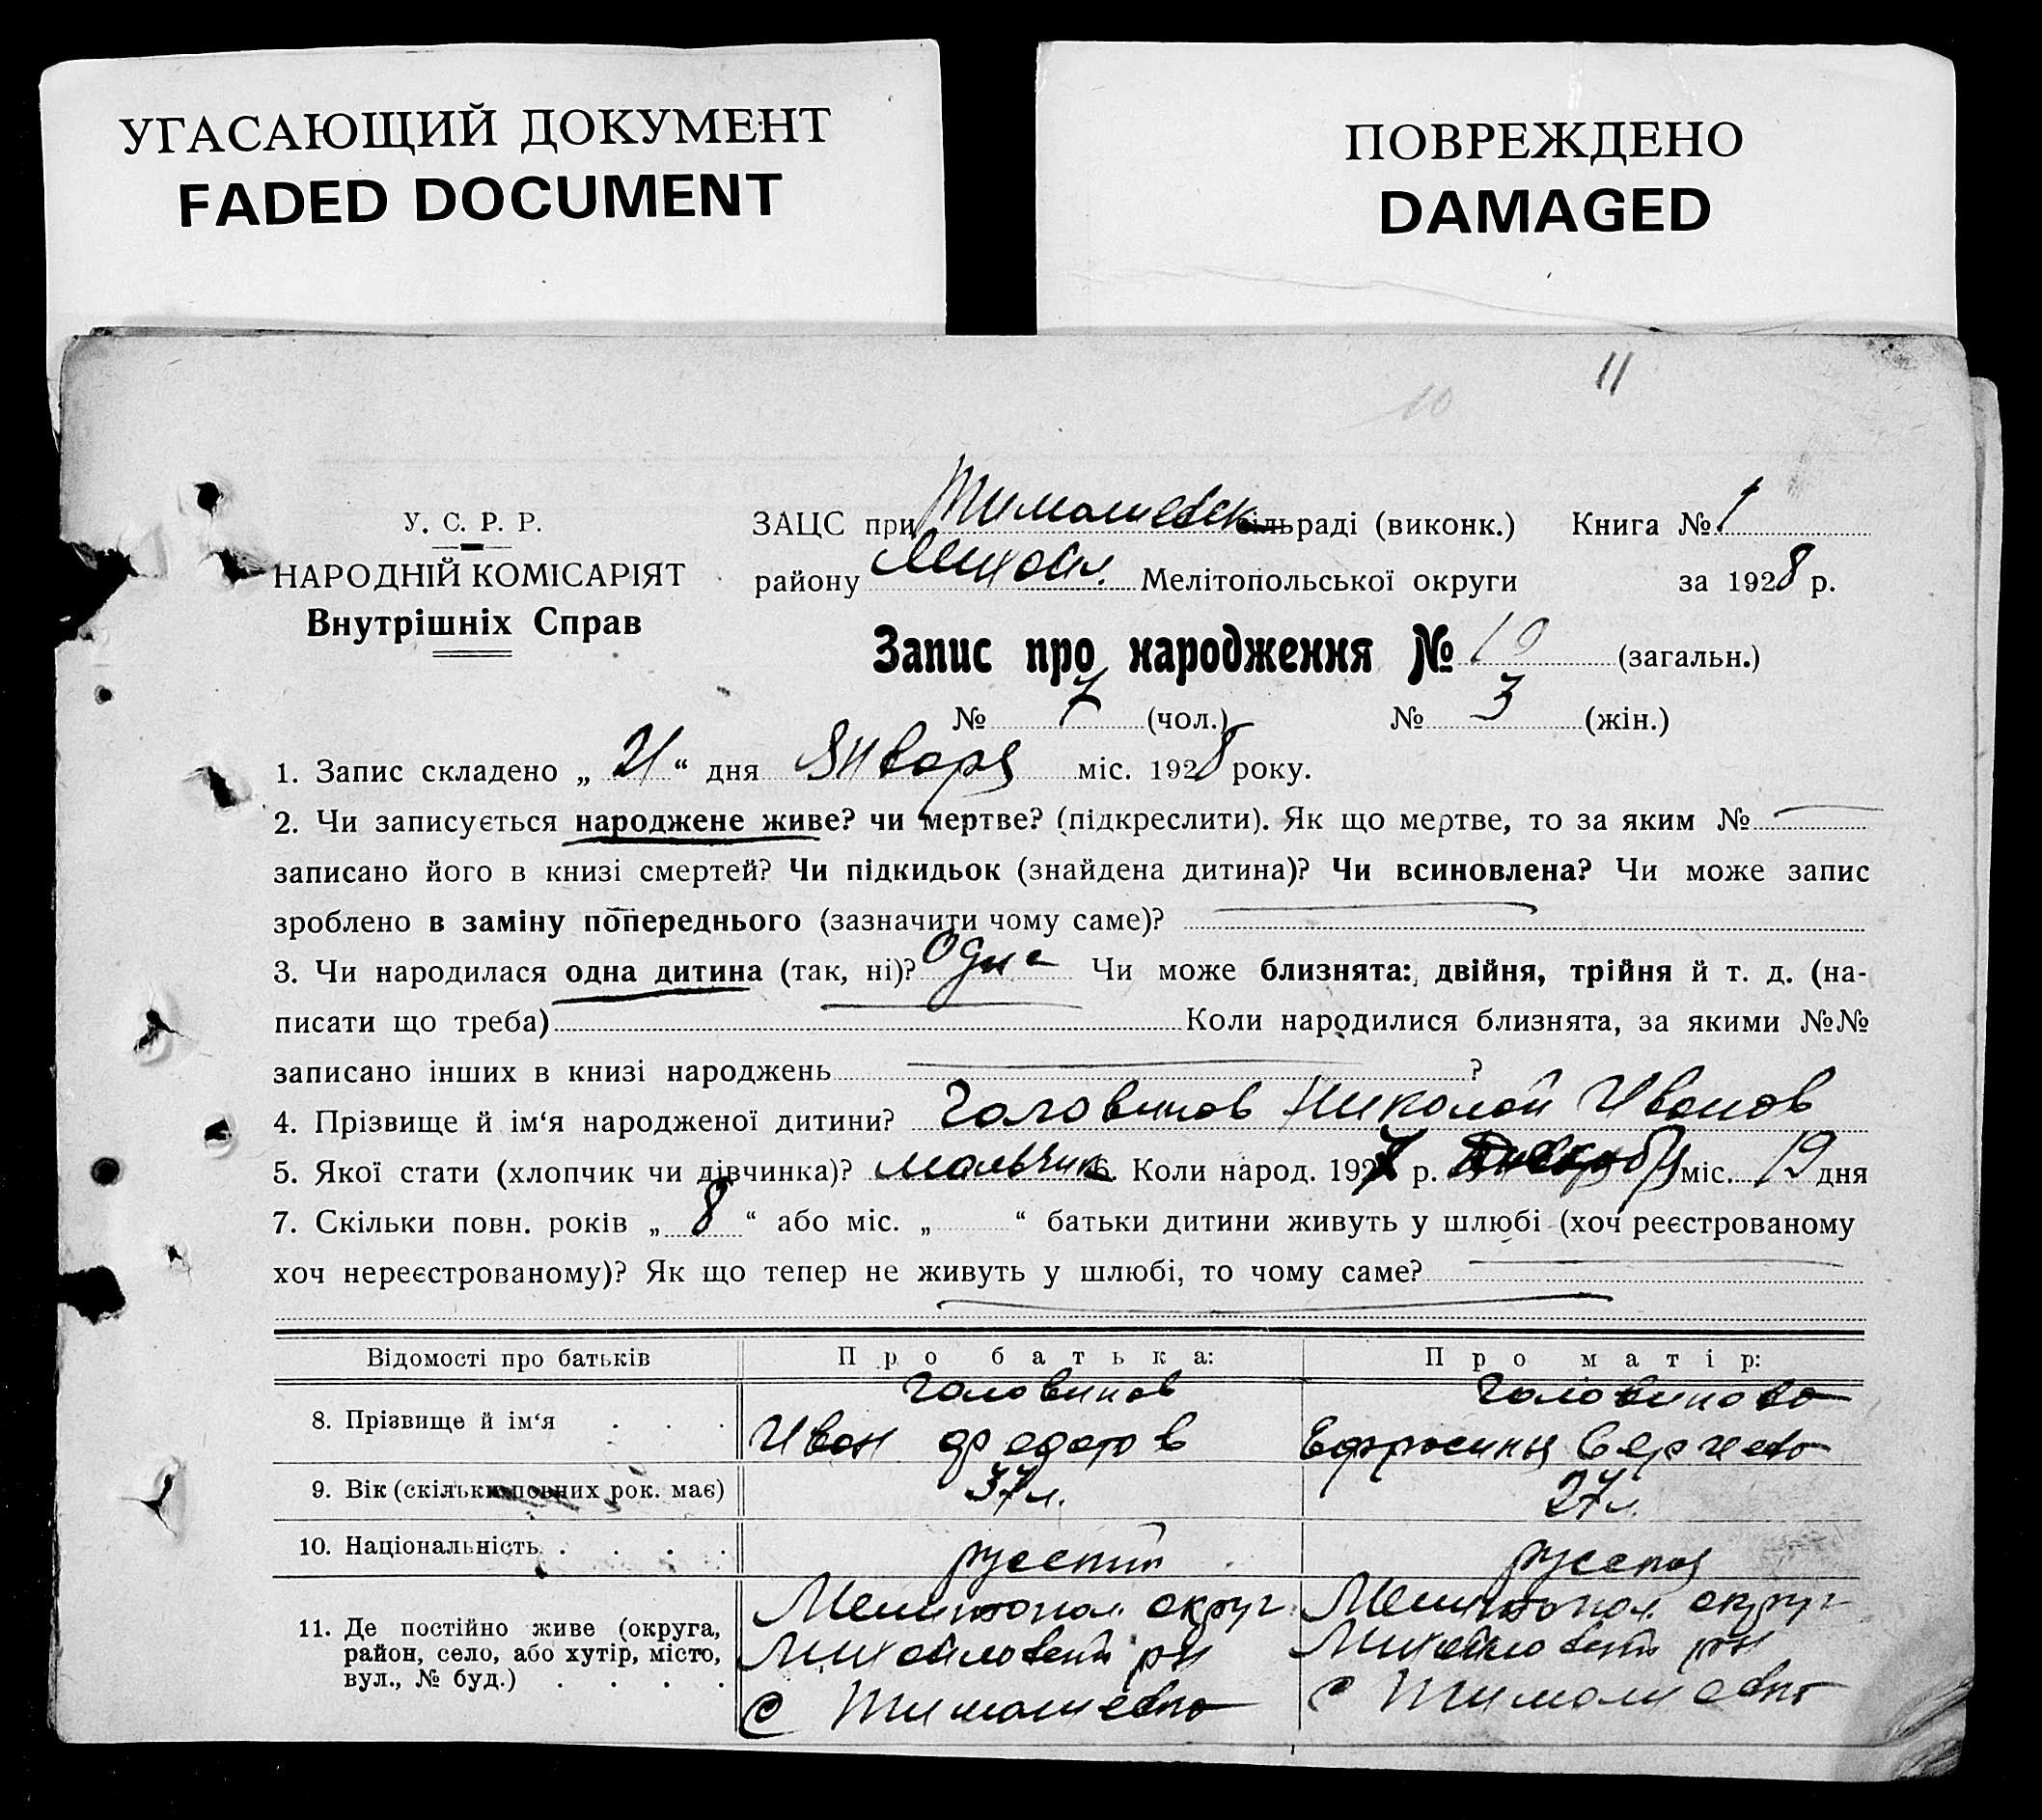 УГАСАЮЩИЙ ДОКУМЕНТ
FADED DOCUMENT
ПОВРЕЖДЕНО
DAMAGED
10
11
У. С. Р. Р.
НАРОДНІЙ КОМІСАРІЯТ
Внутрішніх Справ
ЗАЦС при Тимошевск сільраді (виконк.) Книга № 1
району Михайл. Мелітопольської округи за 1928 р.
Запис про народження № 10 (загальн.)
№ 7 (чол.) № 3 (жін.)
1. Запис складено „ 21 “ дня Января міс. 1928 року.
2. Чи записується народжене живе? чи мертве? (підкреслити). Як що мертве, то за яким №
записано його в книзі смертей? Чи підкидьок (знайдена дитина)? Чи всиновлена? Чи може запис
зроблено в заміну попереднього (зазначити чому саме)?
3. Чи народилася одна дитина (так, ні)? Одна Чи може близнята: двійня, трійня й т. д. (на-
писати що треба) Коли народилися близнята, за якими №№
записано інших в книзі народжень ?
4. Прізвище й ім‘я народженої дитини? Головинов Николай Иванов
5. Якої стати (хлопчик чи дівчинка)? мальчик 6. Коли народ. 1927 р. Декабря міс. 19 дня
7. Скільки повн. років „ 8 “ або міс. „ “ батьки дитини живуть у шлюбі (хоч реєстрованому
хоч нереєстрованому)? Як що тепер не живуть у шлюбі, то чому саме?
Відомості про батьків Про батька: Про матір:
8. Прізвище й ім‘я Головинов Иван Федотов Головинова Ефросинья Сергеева
9. Вік (скільки повних рок. має) 37 л. 27 л.
10. Національність русский русская
11. Де постійно живе (округа, район, село, або хутір, місто, вул., № буд.)
Мелитопол. округ Мелитопол. округ
Михайловский рн Михайловский рн
с Тимошевка с Тимошевка